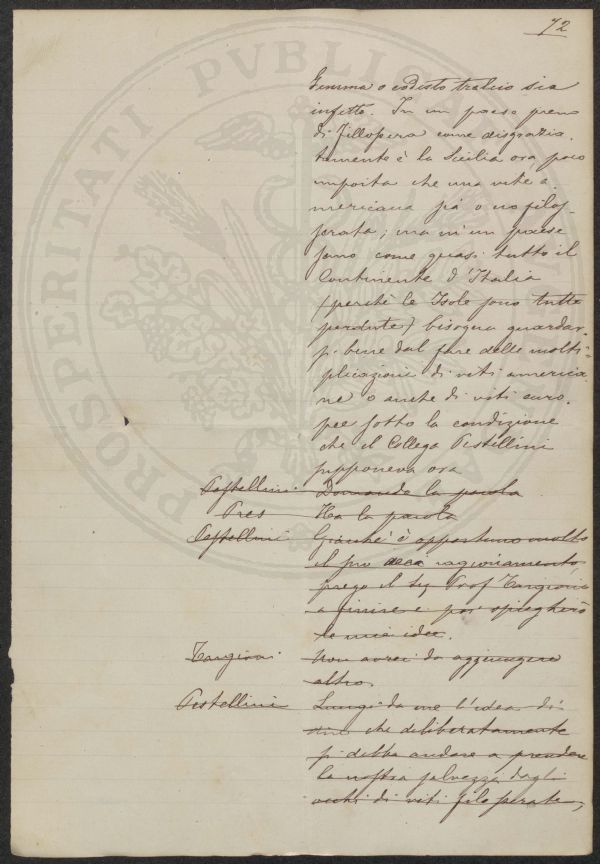 72
Gemma o codesto tralcio sia
infetto. In un paese pieno
di Fillossera come disgrazia-
tamente è la Sicilia ora poco
importa che una vite a-
mericana già o no filos-
serata; ma in un paese
sano come quasi tutto il
Continente d'Italia
(perchè le Isole sono tutte
perdute) bisogna guardar-
si bene dal fare delle molti-
plicazioni di viti america-
ne o anche di viti euro-
pee sotto la condizione
che il Collega Pestellini
supponeva ora
Pestellini Domando la parola
Pres Ha la parola
Pestellini Giacché è opportuno molto
il suo ragionamento
prego il Sig Prof Targioni
a finire e poi spiegherò
la mia idea.
Targioni Non avrei da aggiungere
altro.
Pestellini Lungi da me l'idea di
dire che deliberatamente
si debba andare a prendere
la nostra salvezza dagli
occhi di viti filosserate,
PROSPERITATI PVBLICAE